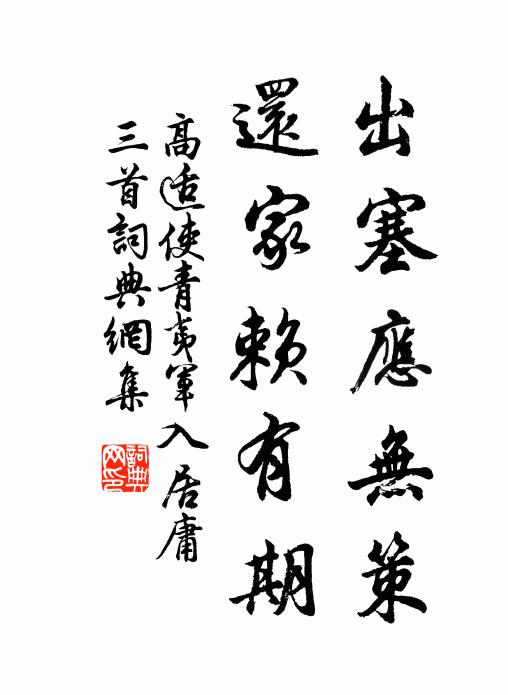 出塞應無策
還家賴有期
高适使青夷軍入居庸
三首詞典網集
詞典
网印